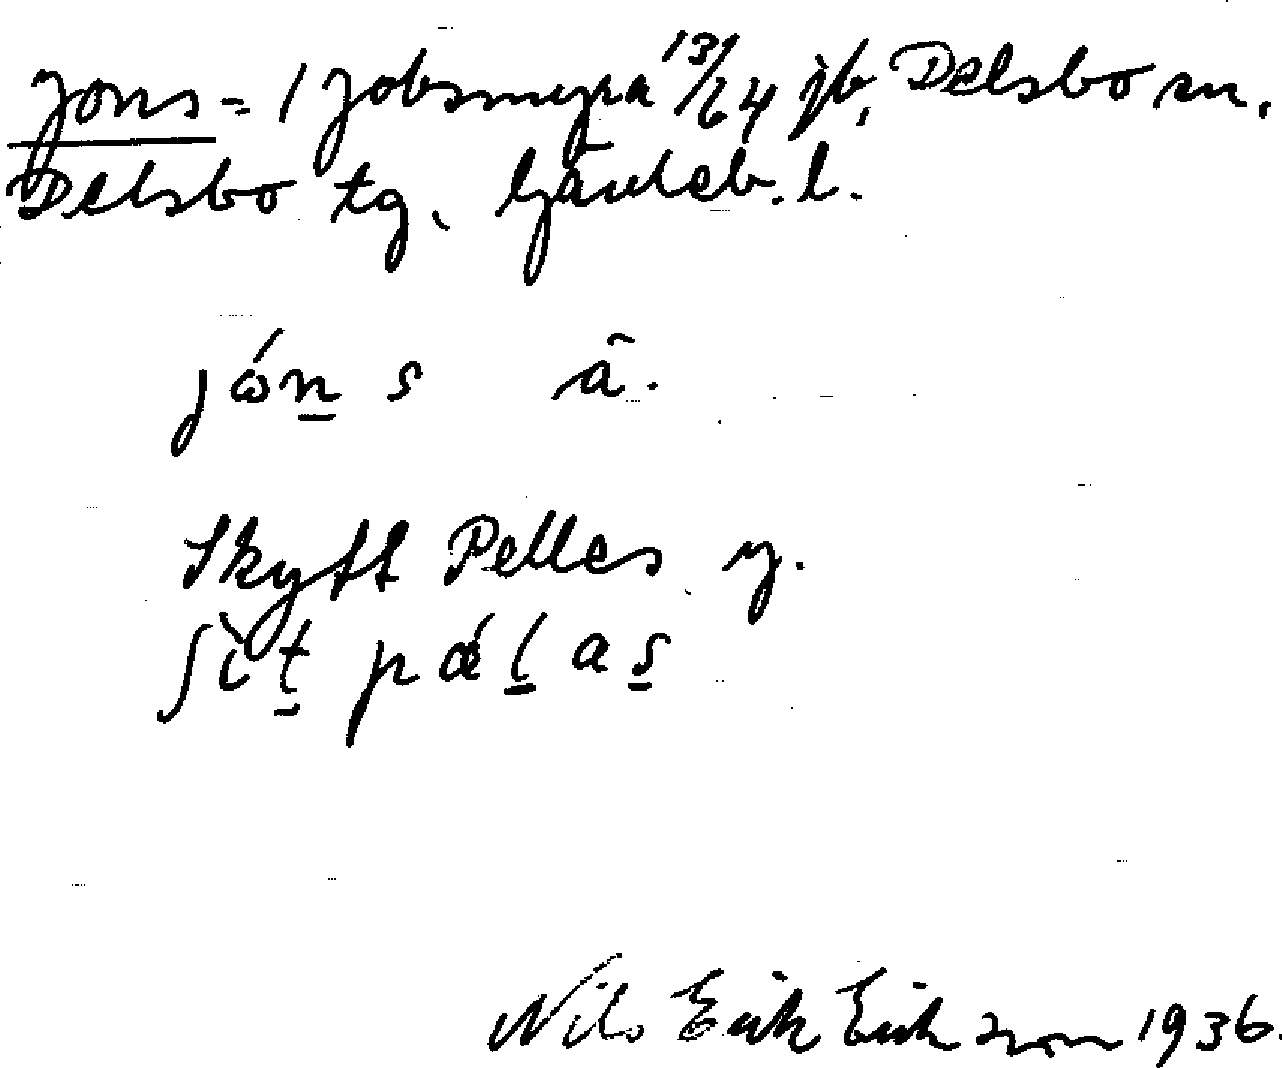 Jons = i Jobsmyra 13/64 jb, Delsbo sn.
Delsbo tg. Gävleb. l.
jón̲ s ā.
Skytt Pelles y.
ʃìt̲ pǽl̲ a s̲
Nils Erik Eriksson 1936.